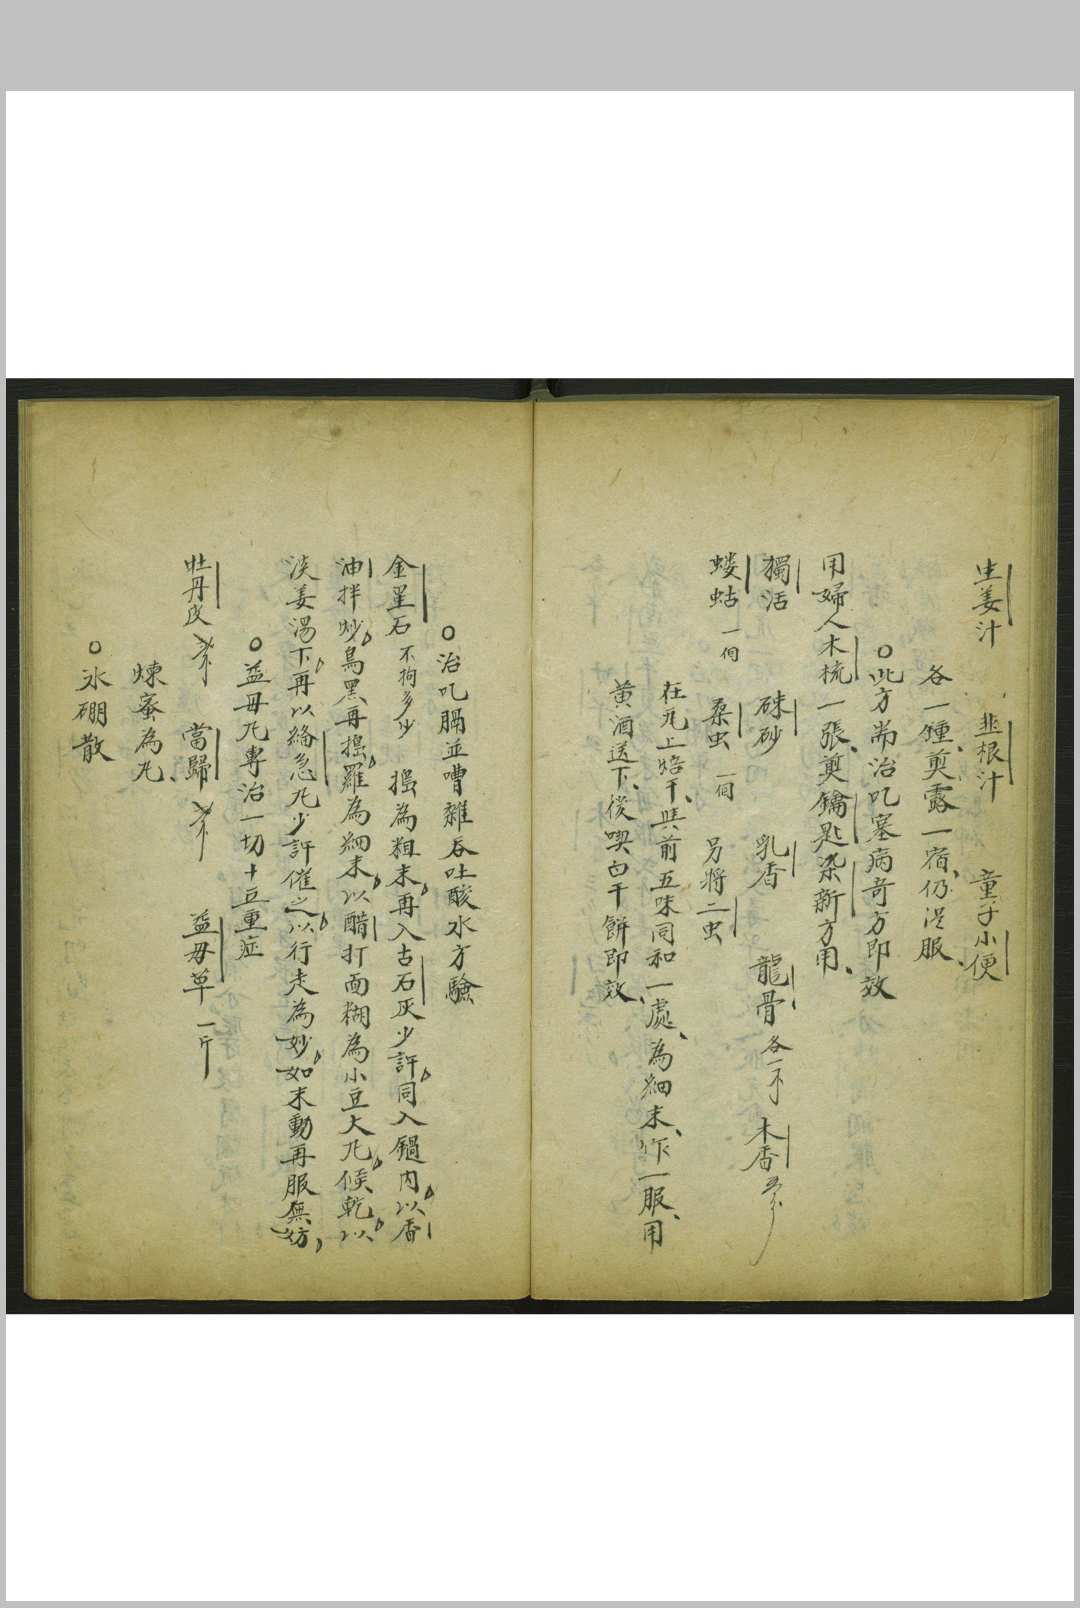 生姜汁 韭根汁 童子小便
各一鍾、煎露一宿、仍温服、
○此方耑治叽塞病奇方即效
用婦人木梳一張、煎鑰匙染新方用、
獨活 硃砂 乳香 龍骨 各一 木香
蝼蛄 一個 桑虫 一個 另將二虫
在瓦上焙干、共前五味同和一處、為細末、作一服、用
黄酒送下、後喫白干餅即效、
○治叽膈並嘈雜吞吐酸水方驗
金星石 不拘多少 搗為粗末再入古石灰少許同入鍋内以香
油拌炒烏黑再搗羅為細末以醋打面糊為小豆大凡候乾以
淡姜湯下再以絳急凡少許催之以行走為妙如未動再服無妨
○益毋凡專治一切十豆重症
牡丹皮 當歸 益毋草 一斤
煉蜜為凡、
○氷硼散